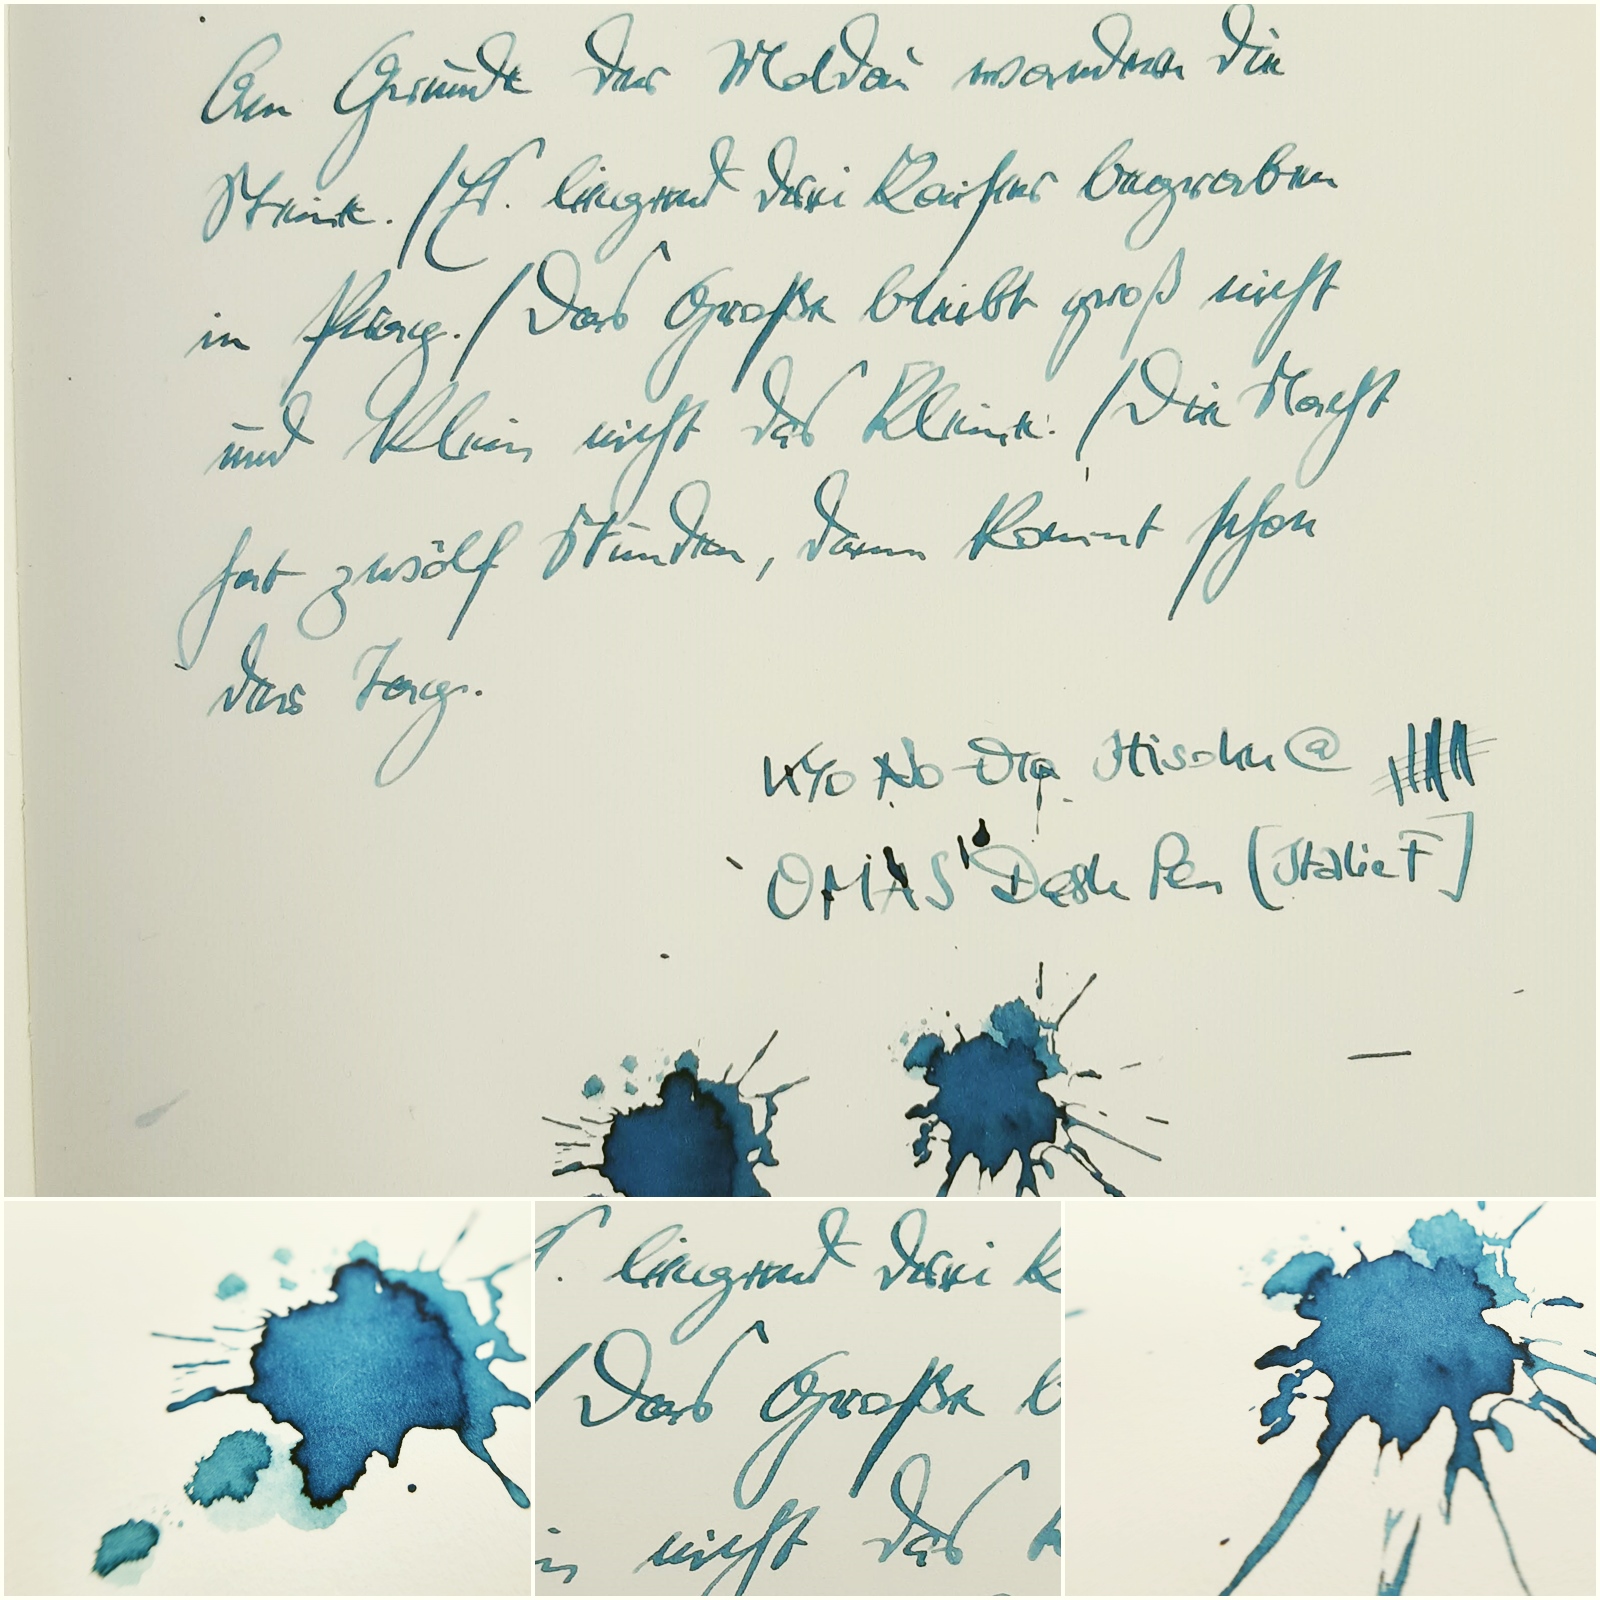 Am Grunde der Moldau wandern die
Steine. / Es liegend drei Kaiser begraben
in Prag. / Das Große bleibt groß nicht
und klein nicht das Kleine. / Die Nacht
hat zwölf Stunden, dann kommt schon
der Tag.
Kyo No-Oto Hisoku @
OMAS Desk Pen [Italic F]
liegend drei K
/ Das Große b
nicht das